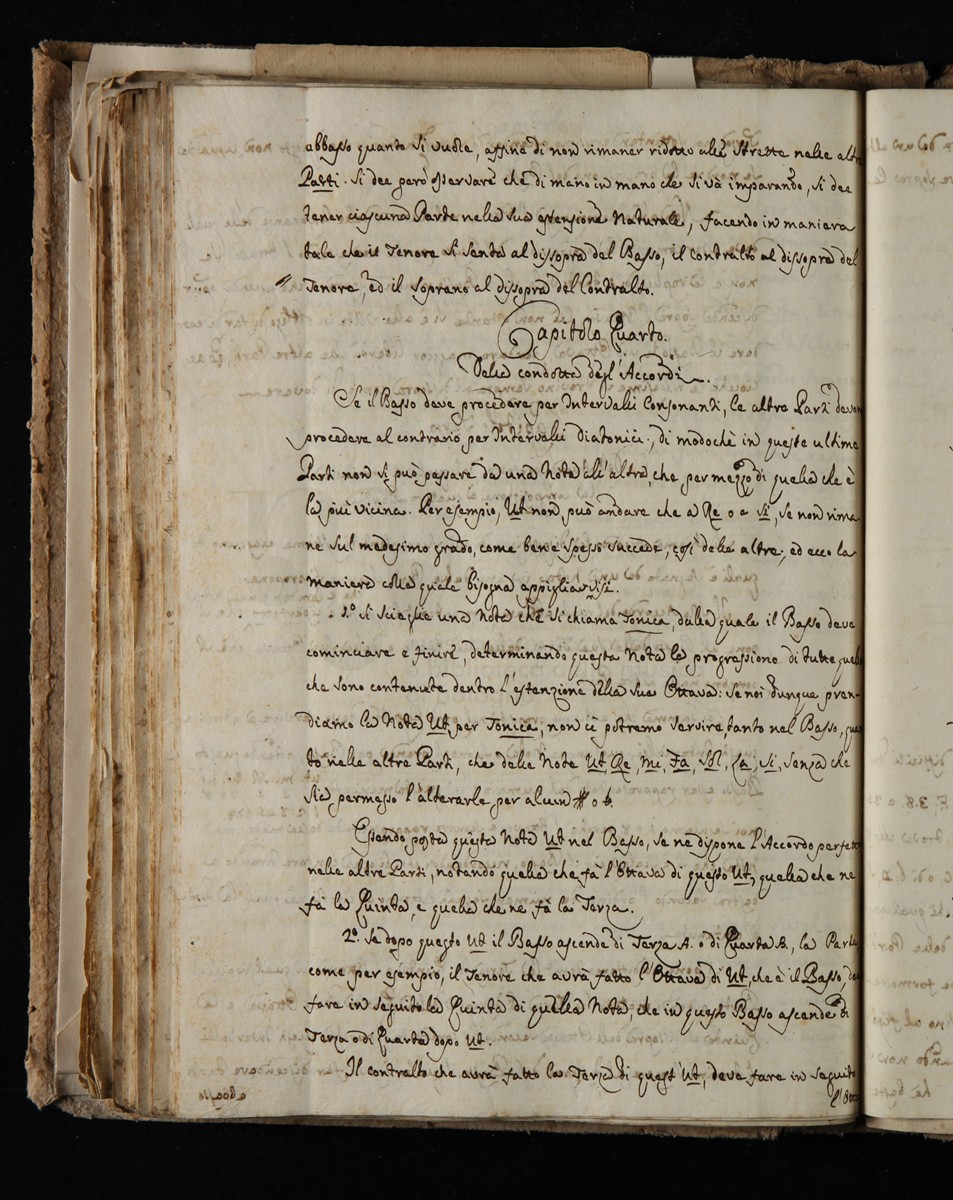 abbasso quanto si vuole, affine di non rimaner ridotto alle strette nelle alt
Parti. Si dee però osservare che di mano in mano che si và imparando, si dee
tener ciascuna Parte nella sua estensione Naturale, facendo in maniera
tale che il Tenore si senta al dissopra del Basso, il contralto al dissopra del
Tenore, ed il soprano al dissopra del Contralto.
Capitolo Quarto.
Della condotta degl'Accordi.
Se il Basso deve procedere per Intervalli Consonanti, le altre Parti devon
procedere al contrario per Intervalli diatonici, di modochè in queste ultime
Parti non si può passare da una Nota all'altra, che per mezzo di quella che è
la più vicina. Per esempio, Ut non può andare che a Re o a si, se non rima
ne sul medesimo grado, come bene spesso succede, così delle altre, ed ecco la
maniera colla quale bisogna appigliarvisi.
1.º Si sceglie una Nota che si chiama Tonica, dalla quale il Basso deve
cominciare e finire, determinando questa Nota la progressione di tutte quelle
che sono contenute dentro l'estenzione della sua Ottava: se noi dunque pren-
diamo la Nota Ut per Tonica, non ci potremo servire, tanto nel Basso, quan
to nelle altre Parti, che delle Note Ut, Re, mi, Fa, Sol, La, Si, senza che
sia permesso l'alterarle per alcun # o b.
Essendo posta questa Nota Ut nel Basso, se ne dispone l'Accordo perfett
nelle altre Parti, notando quella che fà l'Ottava di questo Ut, quella che ne
fà la Quinta, e quella che ne fà la Terza.
2.º Se dopo questo Ut il Basso ascende di Terza A. o di Quarta B., la Parte
come per esempio, il Tenore che avrà fatto l'Ottava di Ut, che è il Basso, de
fare in seguito la Quinta di quella Nota, che in questo Basso ascende di
Terza o di Quarta dopo Ut.
Il contralto che avrà fatto la Terza di quest Ut, deve fare in seguito
l'Ott